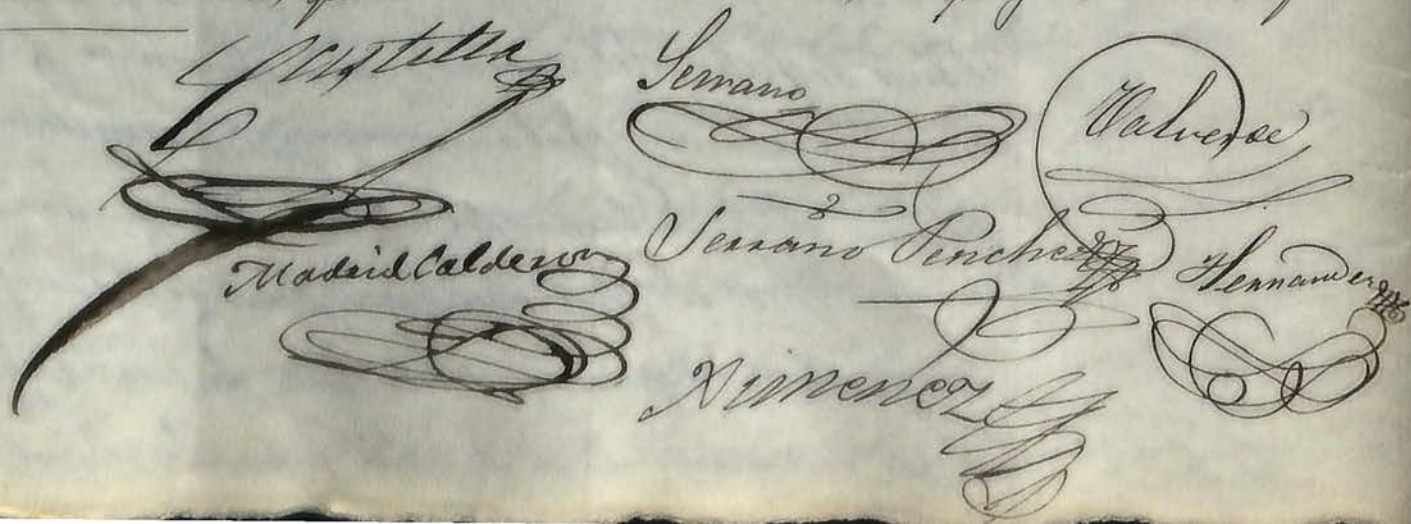 Castilla
Serrano
Valverde
Madrid Calderon
Serrano Penche
Hernandez
Ximenez